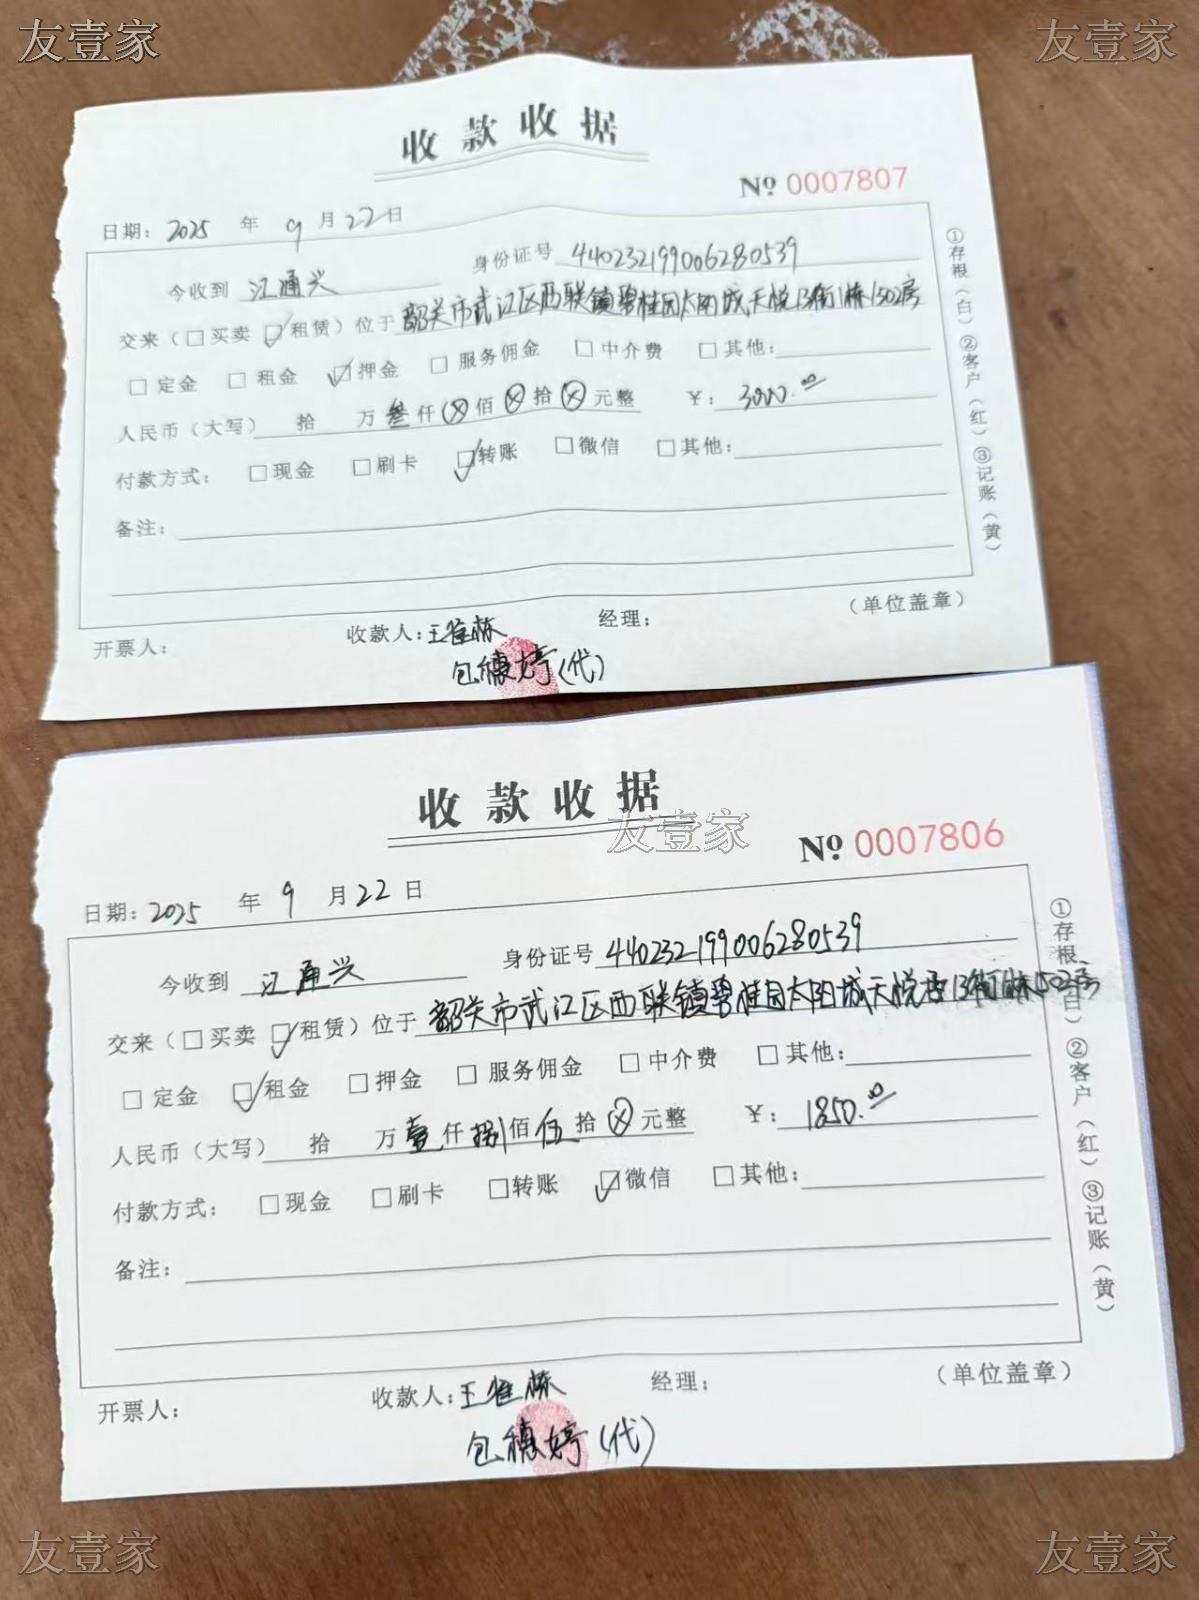 友壹家 友壹家
收款收据
Nº 0007807
日期: 2025 年 9 月 22 日
今收到 江通兴 身份证号 440232199006280539
交来(□买卖 ☑租赁)位于 韶关市武江区西联镇碧桂园太阳城天悦13街1栋1502房
□定金 □租金 ☑押金 □服务佣金 □中介费 □其他:
人民币(大写) 拾 万 叁 仟 ⊗ 佰 ⊗ 拾 ⊗ 元整 ¥: 3000.00
付款方式: □现金 □刷卡 ☑转账 □微信 □其他:
备注:
(单位盖章)
开票人: 收款人: 王 栋 经理:
包穗婷(代)
①存根(白)②客户(红)③记账(黄)
收款收据
友壹家
Nº 0007806
日期: 2025 年 9 月 22 日
今收到 江通兴 身份证号 440232199006280539
交来(□买卖 ☑租赁)位于 韶关市武江区西联镇碧桂园太阳城天悦 13街 栋1502房
□定金 ☑租金 □押金 □服务佣金 □中介费 □其他:
人民币(大写) 拾 万 壹 仟 捌 佰 伍 拾 ⊗ 元整 ¥: 1850.00
付款方式: □现金 □刷卡 □转账 ☑微信 □其他:
备注:
(单位盖章)
开票人: 收款人: 王 栋 经理:
包穗婷(代)
①存根(白)②客户(红)③记账(黄)
友壹家 友壹家